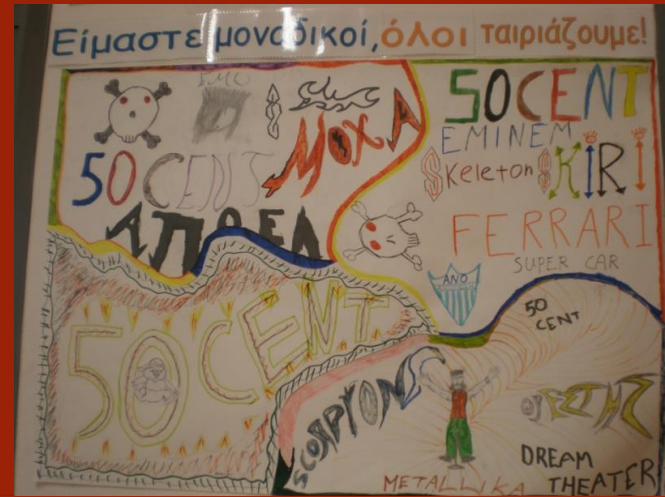 Είμαστε μοναδικοί, όλοι ταιριάζουμε!
EMO
50 CENT
ΜΟΧΑ
ΑΠΟΕΛ
50CENT
EMINEM
Skeleton
KIRI
FERRARI
SUPER CAR
ΑΝΟ
50 CENT
50
CENT
SCORPIONS
ΟΡΕΣΤΗΣ
METALLIKA
DREAM
THEATER